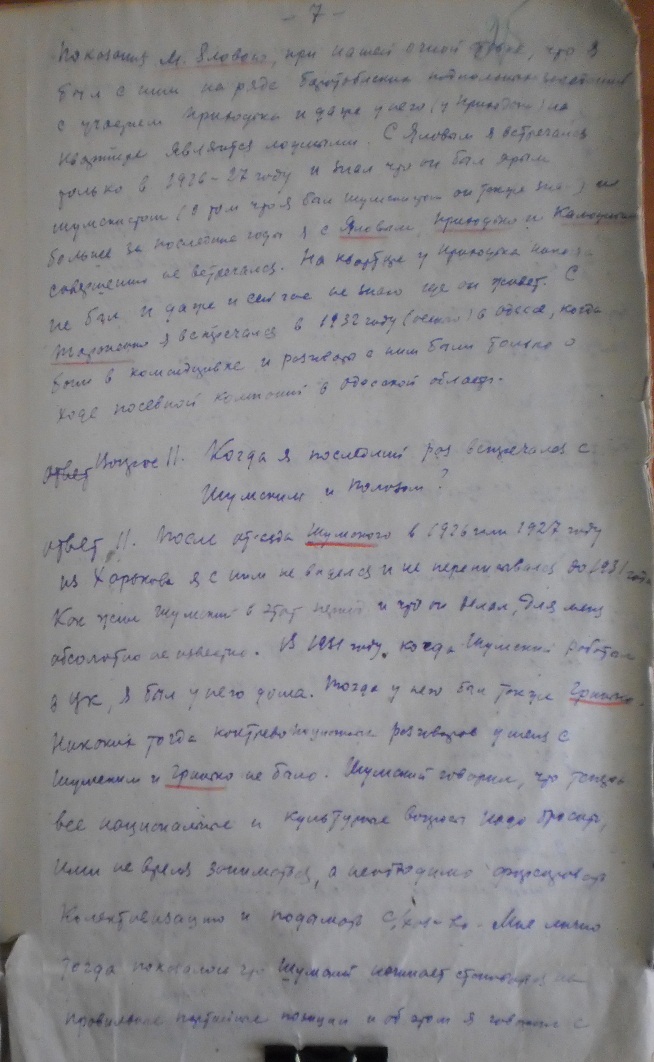 - 7 -
Показания М. Ялового, при нашей очной ставке, что я
был с ним на ряде боротьбиских подпольных
с участием Приходько и даже у него (у Приходько) на
квартире является ложными. С Яловым я встречался
только в 1926-27 году и знал что он был ярым
шумскистом (о том что я был шумскистом он тоже знал) но
больше за последние годы я с Яловым, Приходько и
совершенно не встречался. На квартире у Приходька никогда
не был и даже и сейчас не знаю где он живет. С
я встречался в 1932 году в Одессе, когда
был в командировке и разговор с ним были только о
ходе посевной компании в Одеской области.
ответ Вопрос 11. Когда я последний раз встречался с
Шумским и Полозом?
ответ 11. После отъезда Шумского в 1926 или 1927 году
из Харькова я с ним не виделся и не переписывался до 1931 года
Как жил Шумский в этот период и что он делал, для меня
абсолютно не известно. В 1931 году, когда Шумский работал
в ЦК, я был у него дома. Тогда у него был также Гринько.
Никаких тогда контрреволюционных разговоров у меня с
Шумским и Гринько не было. Шумский говорил, что теперь
все национальные и культурные вопросы надо бросить,
ими не время заниматься, а необходимо форсировать
колективизацию и подымать с/хоз-во. Мне лично
тогда показалось что Шумский начинает становится на
правильные партийные позиции и об этом я говорил с